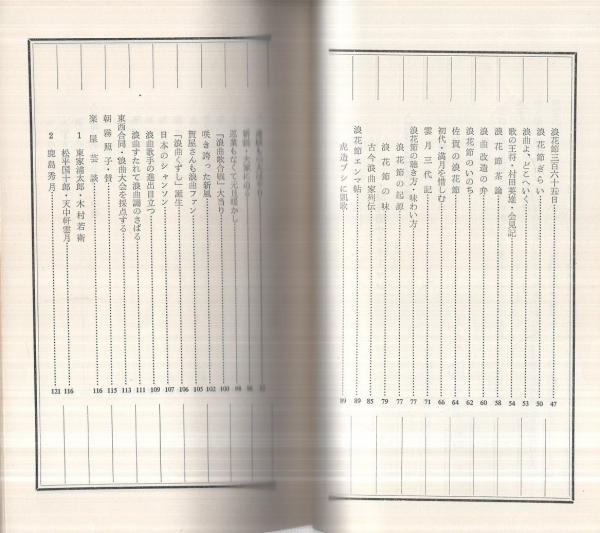 浪花節三百六十五日 47
浪花節ぎらい 50
浪曲よ、どこへいく 53
歌の王将・村田英雄・会見記 54
浪花節茶論 58
浪曲改造の弁 60
浪花節のいのち 62
佐賀の浪花節 64
初代・満月を惜しむ 66
雲月三代記 71
浪花節の聴き方・味わい方 77
浪花節の起源 77
浪花節の味 79
古今浪曲家列伝 85
浪花節エンマ帖 89
虎造ブシに凱歌 89
「浪曲歌合戦」大当り 100
咲き誇った新風 102
賀屋さんも浪曲ファン 105
「浪曲くずし」誕生 106
日本のシャンソン 107
浪曲歌手の進出目立つ 109
浪曲すたれて浪曲調のさばる 111
東西合同・浪曲大会を採点する 113
朝霧照子・賛 115
楽屋芸談 116
1 東家浦太郎・木村若衛
松平国十郎・天中軒雲月 116
2 鹿島秀月 121